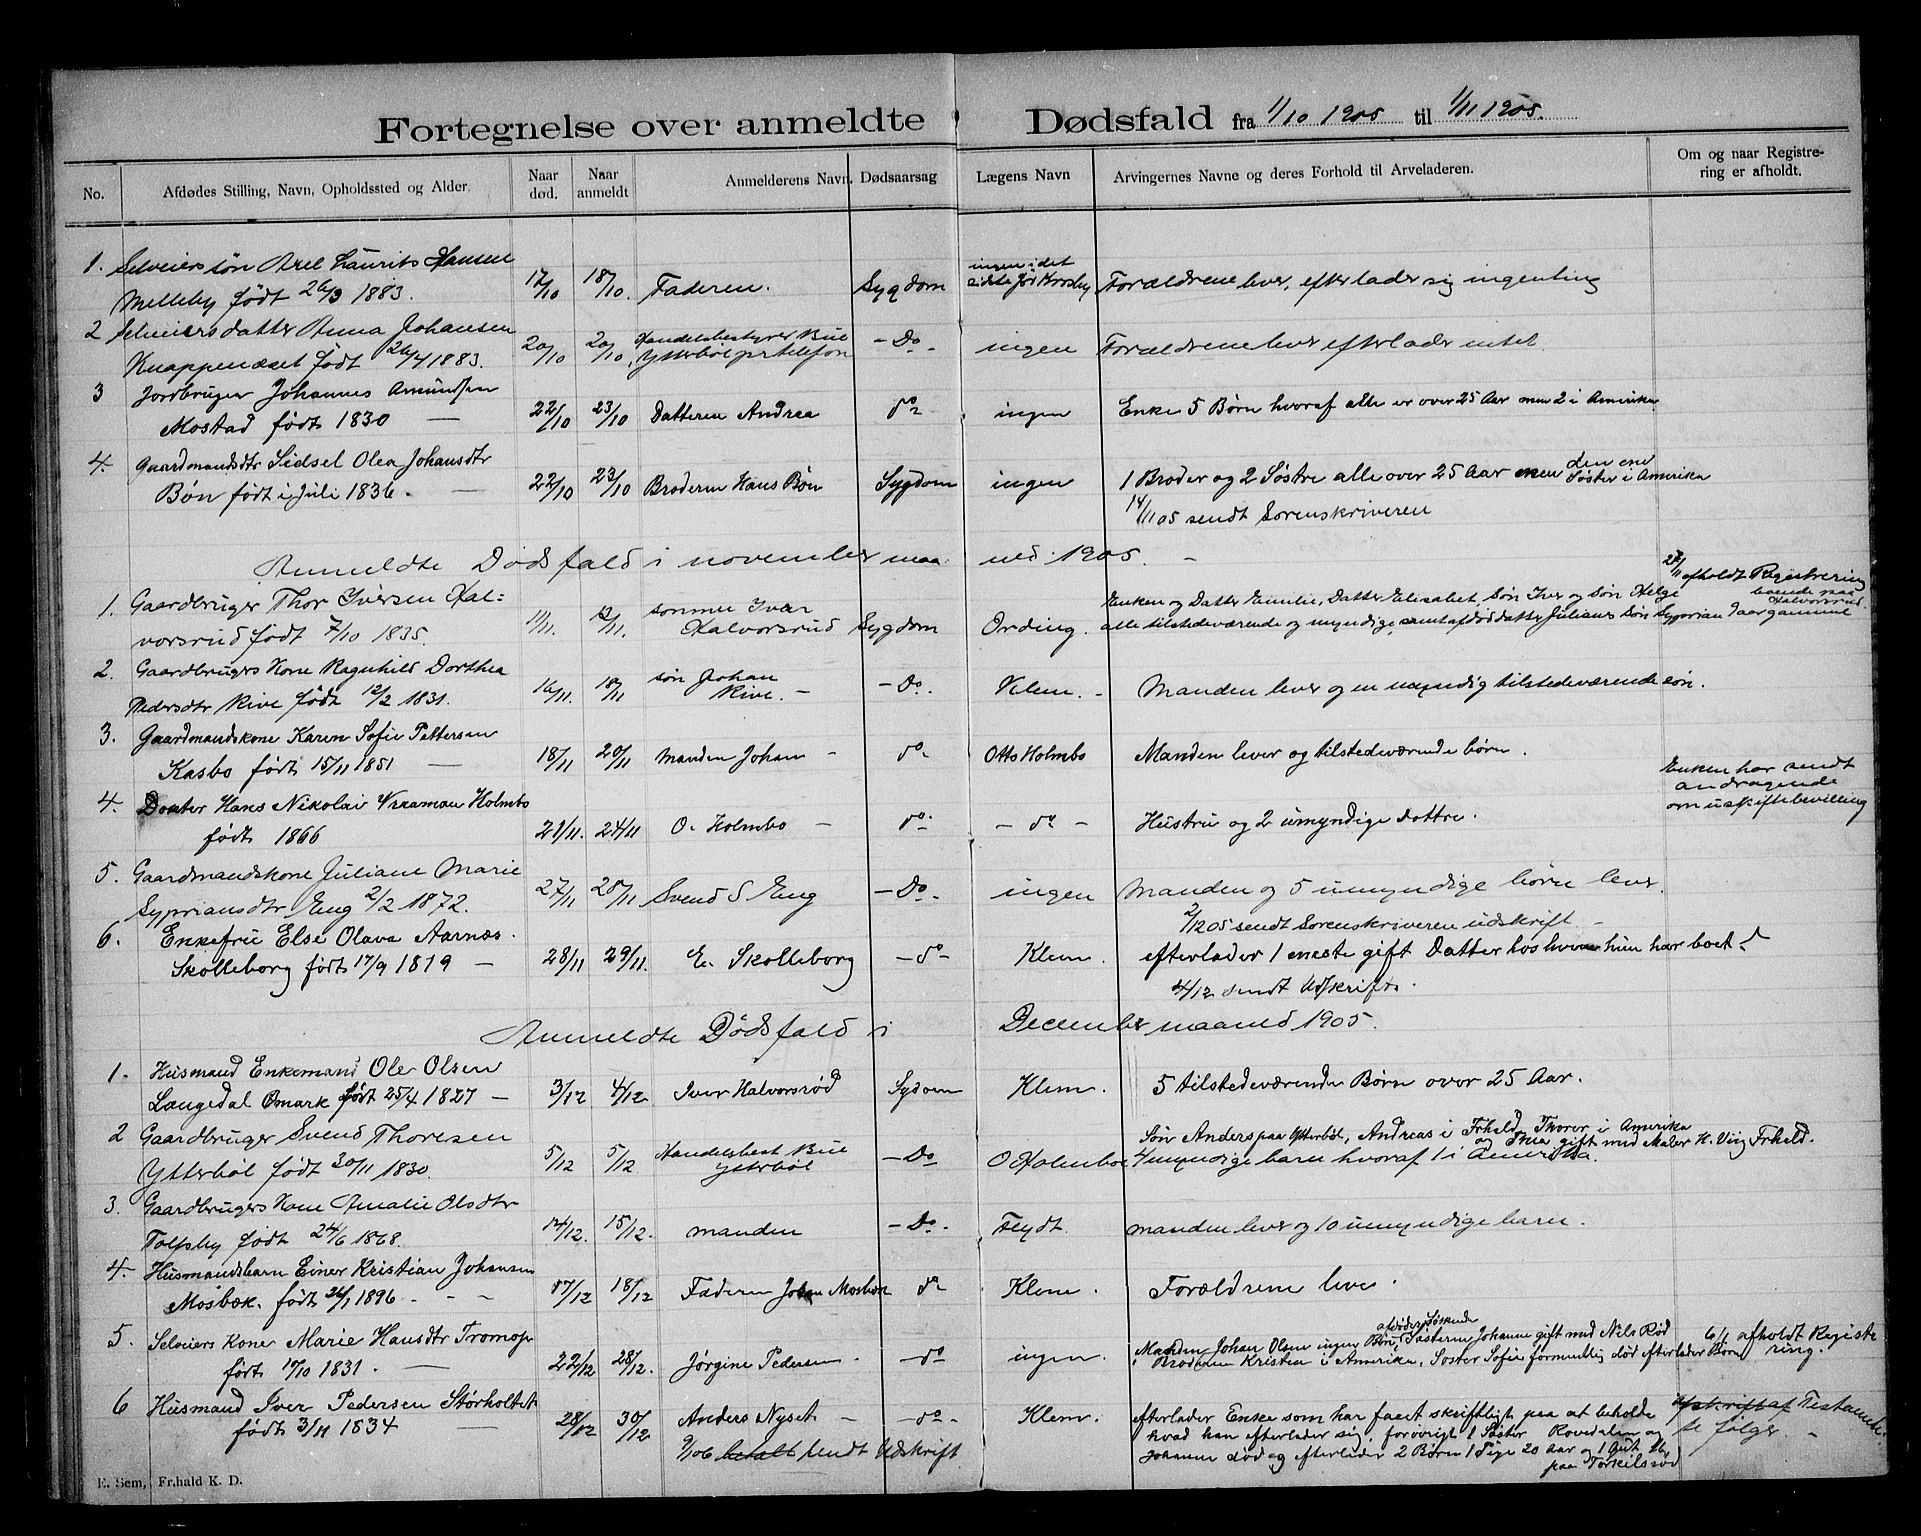 Fortegnelse over anmeldte Dødsfald fra 1/10 1905 til 1/11 1905.
No. Afdødes Stilling, Navn, Opholdssted og Alder. Naar død. Naar anmeldt Anmelderens Navn. Dødsaarsag Lægens Navn Arvingernes Navne og deres Forhold til Arveladeren. Om og naar Registrering er afholdt.
1. Selveiersøn Axel Laurits Hansen
Melleby født 26/3 1883. 17/10 18/10. Faderen. Sygdom ingen i det sidste Forældrene lever, efterlader sig ingenting
2 Selveiersdatter Anna Johansen
Knappenæset født 26/4 1883. 20/10 20/10. Handelsbestyrer Bue Ytterbøl pr telefon - Do - ingen Forældrene lever efterlader intet
3 Jordbruger Johannes Amundsen
Mostad født 1830 — 22/10 23/10 Datteren Andrea do ingen Enke 5 Børn hvoraf alle er over 25 Aar men 2 i Amerika
4. Gaardmandsdtr Sidsel Olea Johansdtr
Bøn født i Juli 1836. — 22/10 23/10 Broderen Hans Bøn Sygdom ingen 1 Broder og 2 Søstre alle over 25 Aar men den ene Søster i Amerika
14/11 05 sendt Sorenskriveren
Anmeldte Dødsfald i november maaned 1905. -
1. Gaardbruger Thor Iversen Halvorsrud
født 7/10 1835. 11/11. 12/11. sønnen Ivar Halvorsrud Sygdom Ording. Enken og Datter Emilie, Datter Elisabet, Søn Iver og Søn Helge
alle tilstedeværende og myndige, samt afdød datter Julianes Søn Syprian
27/11 afholdt Registrering
2. Gaardbrugers Kone Ragnhild Dorthea
Pedersdtr Rive født 12/2 1831. 16/11. 18/11 søn Johan Rive. - - Do. Klem. - Manden lever og en myndig tilstedeværende søn.
3. Gaardmandskone Karen Sofie Pettersen
Kasbo født 15/11 1851 — 18/11 20/11 Manden Johan - do Otto Holmbo Manden lever og tilstedeværende børn.
4. Doktor Hans Nikolai Wraaman Holmbo
født 1866 21/11. 24/11 O. Holmbo - do - do - Hustru og 2 umyndige døttre.
Enken har sendt
andragende
om uskiftebevilling
5. Gaardmandskone Juliane Marie
Sypriansdtr Eng 2/2 1872. 27/11 28/11 Svend S Eng - Do - ingen Manden og 5 umyndige børn lever.
2/12 05 sendt Sorenskriveren udskrift -
6. Enkefru Else Olava Aarnæs
Skolleborg født 17/9 1819 — 28/11 29/11. E. Skolleborg - do - Klem. efterlader 1 eneste gift Datter hos hvem hun har boet.
4/12 sendt Udskrift.
Anmeldte Dødsfald i December maaned 1905.
1. Husmand Enkemand Ole Olsen
Langedal Ømark født 25/4 1827 - 3/12 4/12. Iver Halvorsrød Sygdom Klem. 5 tilstedeværende Børn over 25 Aar.
2 Gaardbruger Svend Thoresen
Ytterbøl født 30/11 1830. 5/12 5/12 Handelsbest Bue Ytterbøl - Do O Holmboe Søn Anders paa Ytterbøl, Andreas i Frhald, Thorer i Amerika
og Thea gift med Maler H. Viig Frhald.
4 myndige barn hvoraf 1 i Amerika.
3. Gaardbrugers Kone Amalie Olsdtr
Tolfsby født 24/6 1868. 14/12. 15/12. manden - Do - Flydt. manden lever og 10 umyndige barn.
4. Husmandsbarn Einer Kristian Johansen
Mosbæk. født 26/1 1896. - - 17/12 18/12 Faderen Johan Mosbæk do Klem. Forældrene lever.
5. Selveiers Kone Marie Hansdtr Tromop
født 19/10 1831. — 22/12 28/12. Jørgine Pedersen - do ingen. Manden Johan Olsen ingen Børn, afdødes Søskende Søsteren Johanne gift med Nils Rød
Broderen Kristian i Amerika, Søster Sofie formentlig død efterlader Børn
6/1 afholdt Registering.
6 Husmand Iver Pedersen Størholtet
født 3/11 1834 — 28/12 30/12 Anders Nyset - - do - Klem. efterlader Enke som har faaet skriftligt paa at beholde
hvad han efterlader sig, forøvrigt 1 Søster Rovedalen og
Johanne død og efterlader 2 Børn 1 Pige 20 Aar og 1 Gut
paa Torkilsrød
Afskrift af Testamente følger. -
9/1 06 betalt sendt Udskrift
E. Sem, Fr.hald K. D.